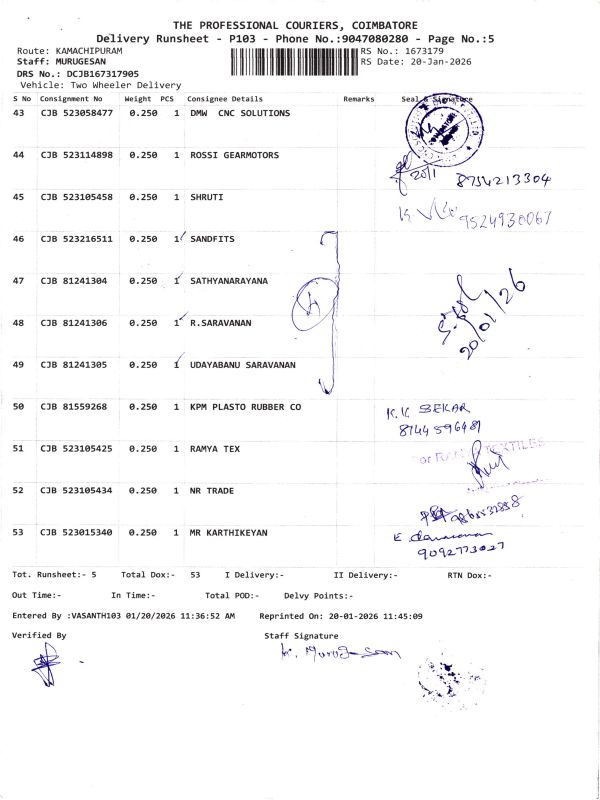 THE PROFESSIONAL COURIERS, COIMBATORE
Delivery Runsheet - P103 - Phone No.:9047080280 - Page No.:5
Route: KAMACHIPURAM RS No.: 1673179
Staff: MURUGESAN RS Date: 20-Jan-2026
DRS No.: DCJB167317905
Vehicle: Two Wheeler Delivery
S No Consignment No Weight PCS Consignee Details Remarks Seal & Signature
43 CJB 523058477 0.250 1 DMW CNC SOLUTIONS
44 CJB 523114898 0.250 1 ROSSI GEARMOTORS
20/1 8754213304
45 CJB 523105458 0.250 1 SHRUTI
9524930067
46 CJB 523216511 0.250 1 SANDFITS
47 CJB 81241304 0.250 1 SATHYANARAYANA
4
48 CJB 81241306 0.250 1 R.SARAVANAN
20/01/26
49 CJB 81241305 0.250 1 UDAYABANU SARAVANAN
50 CJB 81559268 0.250 1 KPM PLASTO RUBBER CO
K.K SEKAR
51 CJB 523105425 0.250 1 RAMYA TEX
TEXTILES
52 CJB 523105434 0.250 1 NR TRADE
53 CJB 523015340 0.250 1 MR KARTHIKEYAN
9092773027
Tot. Runsheet:- 5 Total Dox:- 53 I Delivery:- II Delivery:- RTN Dox:-
Out Time:- In Time:- Total POD:- Delvy Points:-
Entered By :VASANTH103 01/20/2026 11:36:52 AM Reprinted On: 20-01-2026 11:45:09
Verified By Staff Signature